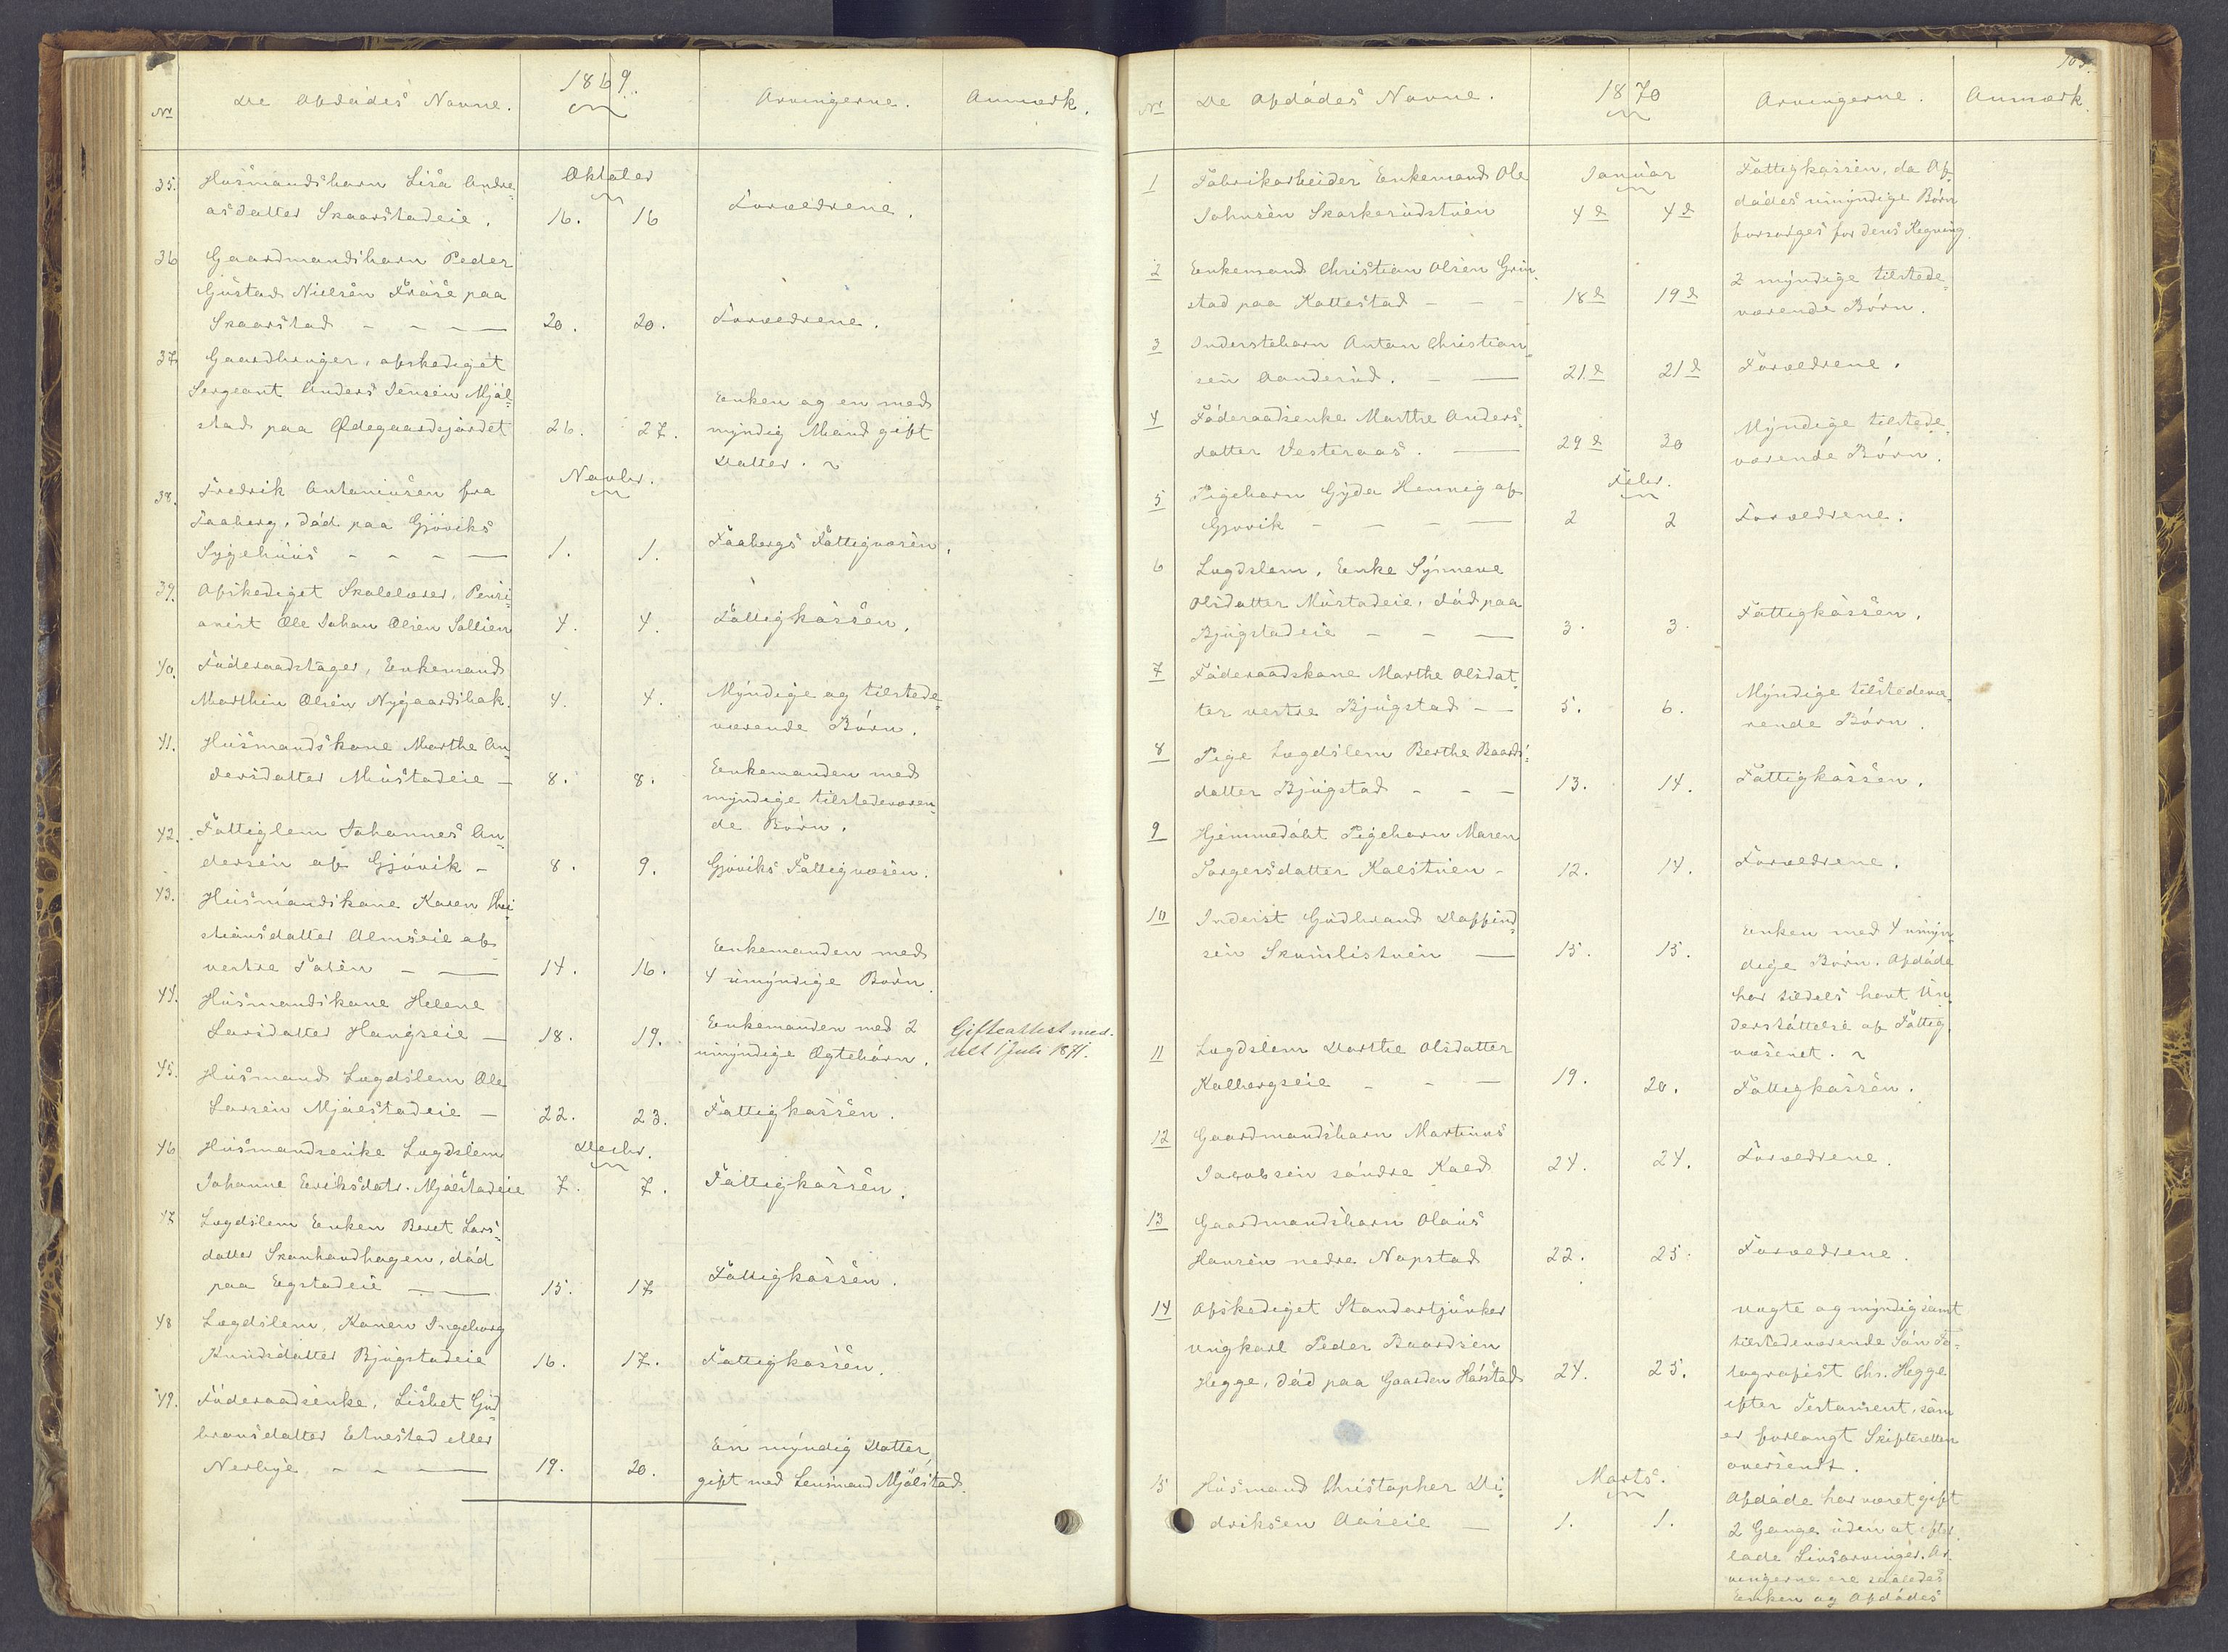 No
De Afdødes Navne.
1869.
Arvingerne.
Anmærk.
35. Huusmandsbarn Lisa Andre-
asdatter Skaarstadeie.
Oktober
16. 16
Forældrene.
36 Gaardmandsbarn Peder
Gustad Nielsen Frøise paa
Skaarstad - - - -
20. 20. Forældrene.
37 Gaardbruger, afskediget
Sergeant Anders Jensen Mjøl-
stad paa Ødegaardsjordet
26. 27.
Enken og en med
myndig Mand gift
Datter.
38. Fredrik Antoniusen fra
Faaberg, død paa Gjøviks
Sygehuus - - - -
Novbr.
1. 1. Faabergs Fattigvæsen.
39. Afskediget Skolelærer, Pensi-
onist Ole Johan Olsen Sollien
4. 4. Fattigkassen.
40. Føderaadstager, Enkemand
Marthin Olsen Nygaardsbak.
4. 4. Myndige og tilstede-
værende Børn.
41. Huusmandskone Marthe An-
dersdatter Mustadeie -
8. 8. Enkemanden med
myndige tilstedeværen-
de Børn.
42. Fattiglem Johannes An-
dersen af Gjøvik -
8. 9. Gjøviks Fattigvæsen.
43. Huusmandskone Karen Chri-
stiansdatter Almseie af
vestre Toten - -
14. 16. Enkemanden med
4 umyndige Børn.
44. Huusmandskone Helene
Larsdatter Haugseie -
18. 19. Enkemanden med 2
umyndige Ægtebørn.
Gifteattest med-
delt 1 Juli 1871.
45. Huusmand Lægdslem Ole
Larsen Mjølstadeie -
22. 23. Fattigkassen.
46 Huusmandsenke Lægdslem
Johanne Eriksdatr. Mjølstadeie
Decbr.
7. 7. Fattigkassen.
47 Lægdslem Enken Beret Lars-
datter Skonhaudhagen, død
paa Egstadeie - -
15. 17 Fattigkassen.
48 Lægdslem, Konen Ingeborg
Knudsdatter Bjugstadeie
16. 17. Fattigkassen.
49. Føderaadsenke, Lisbet Gud-
bransdatter Eknestad eller
Nerbye - - - -
19. 20.
En myndig Datter,
gift med Lensmand Mjølstad.
103.
No
De Afdødes Navne.
1870
Arvingerne.
Anmærk.
1 Fabrikarbeider Enkemand Ole
Johnsen Skarkerudstuen
Januar
4de 4de
Fattigkassen, da Af-
dødes umyndige Børn
forsørges for dens Regning.
2 Enkemand Christian Olsen Grin-
stad paa Kattestad - - -
18de 19de
2 myndige tilstede-
værende Børn.
3 Inderstebarn Anton Christian-
sen Aanderud. - -
21de 21de Forældrene.
4 Føderaadsenke Marthe Anders-
datter Vesteraas. -
29de 30
Myndige tilstede-
værende Børn.
5 Pigebarn Gyda Hennig af
Gjøvik - - - -
Febr.
2 2 Forældrene.
6 Lægdslem, Enke Synneve
Olsdatter Mustadeie, død paa
Bjugstadeie - - -
3. 3. Fattigkassen.
7 Føderaadskone Marthe Olsdat-
ter vestre Bjugstad - -
5. 6.
Myndige tilstedevæ-
rende Børn.
8 Pige Lægdslem Berthe Baards-
datter Bjugstad - - -
13. 14. Fattigkassen.
9 Hjemmedøbt Pigebarn Maren
Torgersdatter Kalstuen -
12. 14. Forældrene.
10 Inderst Gudbrand Daffind-
sen Skumlistuen -
15. 15.
Enken med 4 umyn-
dige Børn. Afdøde
har tildels havt Un-
derstøttelse af Fattig-
væsenet.
11 Lægdslem Dorthe Olsdatter
Kalbergseie - - -
19. 20. Fattigkassen.
12 Gaardmandsbarn Martinus
Jacobsen søndre Kald
24. 24. Forældrene.
13 Gaardmandsbarn Olaus
Hansen nedre Nøpstad
22. 25. Forældrene.
14 Afskediget Standartjunker
ungkarl Peder Baardsen
Hegge, død paa Gaarden Høistad
24. 25.
uægte og myndig samt
tilstedeværende Søn Fo-
tografist Chr. Hegge
efter Testament, som
er forlangt Skifteretten
oversendt.
15 Huusmand Christopher Di-
driksen Aaseie -
Marts.
1. 1.
Afdøde har været gift
2 Gange uden at efter-
lade Livsarvinger. Ar-
vingerne ere saaledes
Enken og Afdødes